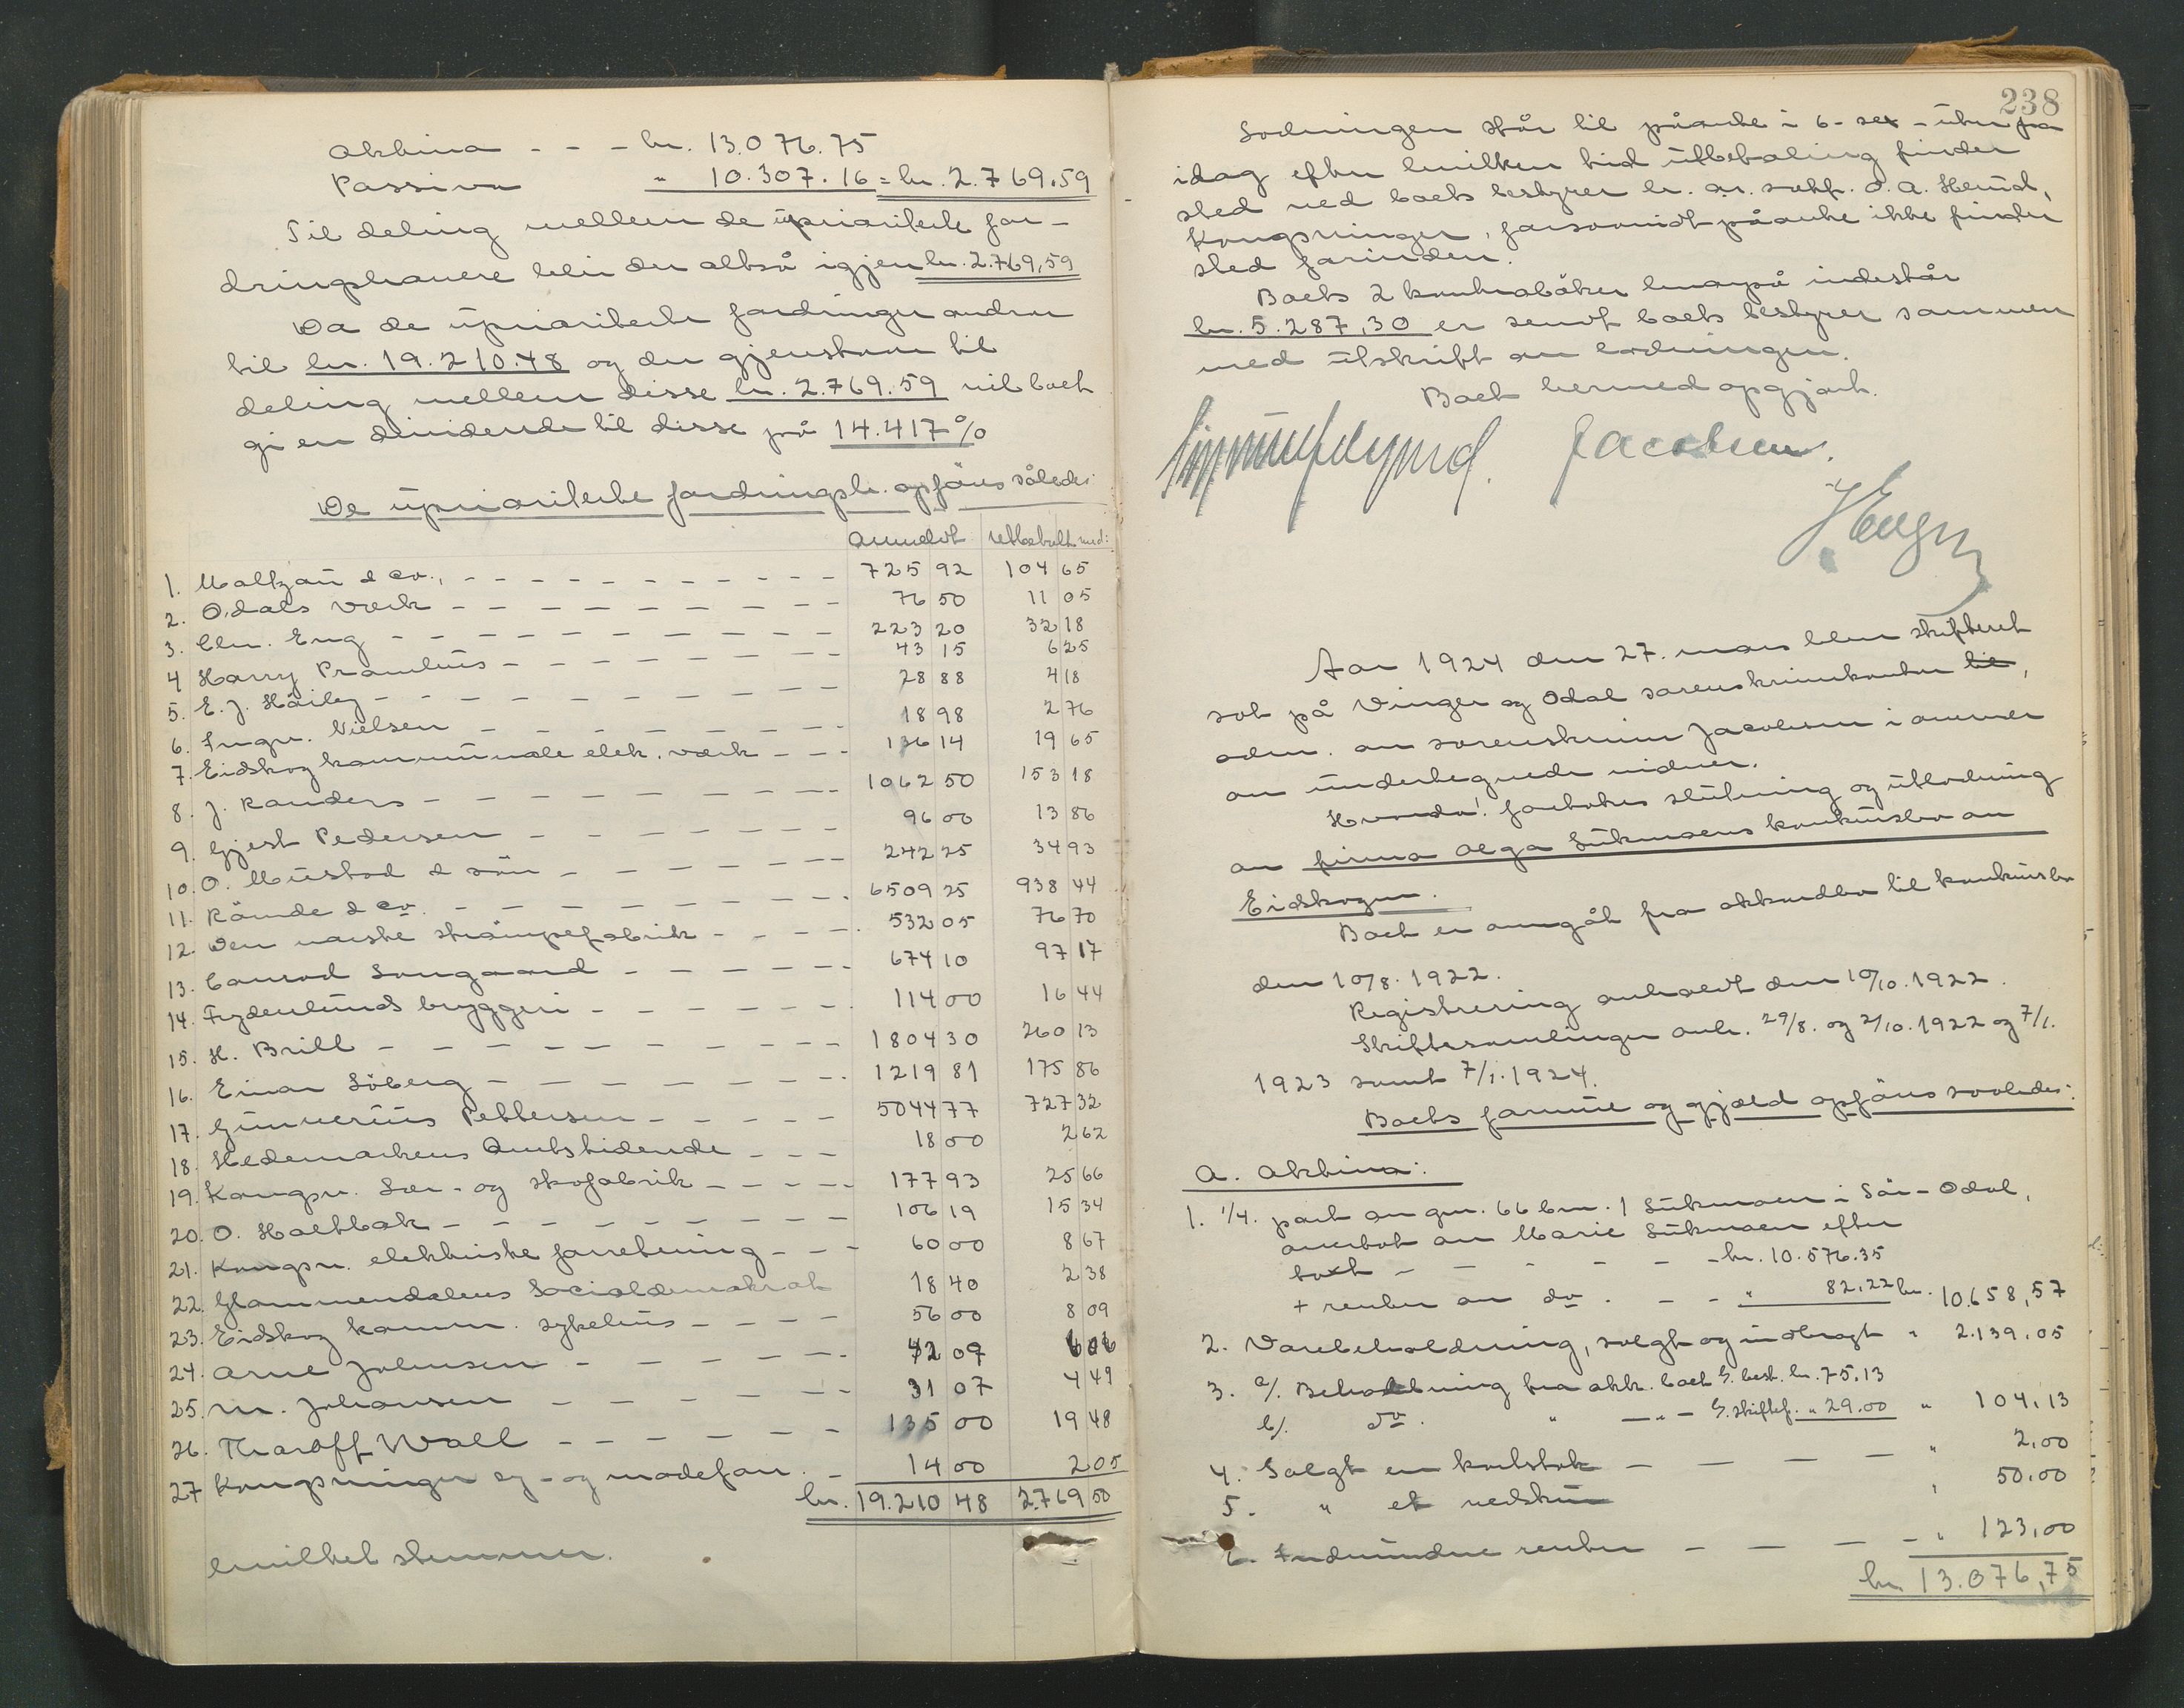 Aktiva - - - kr. 13.076.75
Passiva " 10.307.16 = kr. 2.769.59
Til deling mellem de uprioriterte for-
dringshavere blir der altså igjen kr. 2.769,59
Da de uprioriterte fordringer andrar
til kr. 19.210.48 og der gjenstaar til
deling mellem disse kr. 2.769.59 vil boet
gi en dividende til disse på 14.417 %
De uprioriterte fordringsh. opføres således:
Anmeldt utbetalt med:
1. Maltzau & co., - - - 725 92 104 65
2. Odals Verk - - - 76 50 11 05
3. Chr. Eng - - - 223 20 32 18
4 Harry - - - 43 15 6 25
5. E. J. - - - 28 88 4 18
6. Ingv. Nielsen - - - 18 98 2 76
7. Eidskog kommunale elek. verk - - - 136 14 19 65
8. J. Randers - - - 1062 50 153 18
9. Gjest Pedersen - - - 96 00 13 86
10. O. Mustad & søn - - - 242 25 34 93
11. Rånde & co. - - - 6509 25 938 44
12. Den norske strømpefabrik - - - 532 05 76 70
13. Conrad Langaard - - - 674 10 97 17
14. Frydenlunds bryggeri - - - 114 00 16 44
15. H. Brill - - - 1804 30 260 13
16. Einar Söberg - - - 1219 81 175 86
17. Gunnerius Pettersen - - - 5044 77 727 32
18. Hedemarkens Amtstidende - - - 18 00 2 62
19. Kongsv. Lær- og skofabrik - - - 177 93 25 66
20. O. Holtbak - - - 106 19 15 34
21. Kongsv. elektriske forretning - - - 60 00 8 67
22. Glommendalens Socialdemokrat 18 40 2 38
23. Eidskog komm. sykehus - - - 56 00 8 09
24. Arne Johnsen - - - 42 09 6 06
25. M. Johansen - - - 31 07 4 49
26. Thoroff Wall - - - 135 00 19 48
27 Kongsvinger sy- og motefor. - 14 00 2 05
kr. 19.210 48 2.769 50
hvilket stemmer.
238
Lodningen står til påanke i 6 - sex - uker fra
idag efter hvilken tid utbetaling finder
sted ved boets bestyrer hr. o. r. sakf. O. A. Herud,
Kongsvinger, forsovidt påanke ikke finder
sted forinden.
Boets 2 kontrabøker hvorpå indestår
kr. 5.287,30 er sendt boets bestyrer sammen
med utskrift av lodningen.
Boet hermed opgjort.
Jacobsen.
Aar 1924 den 27. mars blev skifteret
sat på Vinger og Odal sorenskriverkontor til,
adm. av sorenskriver Jacobsen i nærvær
av undertegnede vidner.
Hvorda! foretokes slutning og utlodning
av firma Olga Lükmoens konkursbo av
Eidskogen.
Boet er overgåt fra akkordbo til konkursbo
den 10/8. 1922.
Registrering avholdt den 10/10. 1922.
Skiftesamlinger avh. 29/8. og 2/10. 1922 og 7/1.
1923 samt 7/1. 1924.
Boets formue og gjæld opføres saaledes:
A. Aktiva:
1. 1/4. part av gnr. 66 bnr. 1 Lükmoen i Sör-Odal,
overtat av Marie Lükmoen efter
takst - - - - - kr. 10.576.35
+ renter av do. - - " 82,22 kr. 10.658,57
2. Varebeholdning, solgt og indbragt " 2.139.05
3. a/. Beholdning fra akk. boet G. best. kr. 75.13
b/. do. " - " - G. skiftef. " 29.00 " 104,13
4. Solgt en - - - - " 2,00
5. " et vedskur " 50.00
6. Indvundne renter - - - - " 123,00
kr. 13.076,75